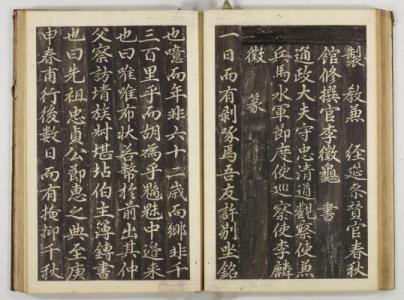 製 教兼 經筵參贊官春秋
館修撰官李徵龜 書
通政大夫守忠清道觀察使兼
兵馬水軍節度使巡察使李麟
徵 篆
一日而有剝啄焉吾友許別坐銘
也噫而年非六十二歲而鄉非千
三百里乎而胡為乎黲縗中遠來
也曰唯唯布狀若幣於前出其仲
父察訪墳族尉堪玷伯主簿鑄書
也曰先祖忠貞公節惠之典至庚
申春甫行後數日而有掩抑千秋